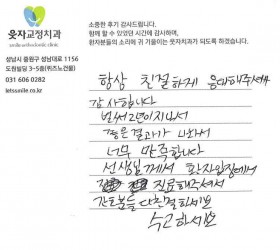 웃자교정치과
smile orthodontic clinic
성남시 중원구 성남대로 1156
도림빌딩 3-5층(위즈노건물)
031 606 0282
letssmile.co.kr
소중한 후기 감사드립니다.
함께 할 수 있었던 시간에 감사하며,
환자분들의 소리에 귀 기울이는 웃자치과가 되도록 하겠습니다.
항상 친절하게 응대해주셔서
감사합니다
벌써 2년이지나서
결과가 나와서
너무 만족합니다
선생님께서 환자입장에서
진료해주셔서
간호분들 다 친절하세요
수고하세요